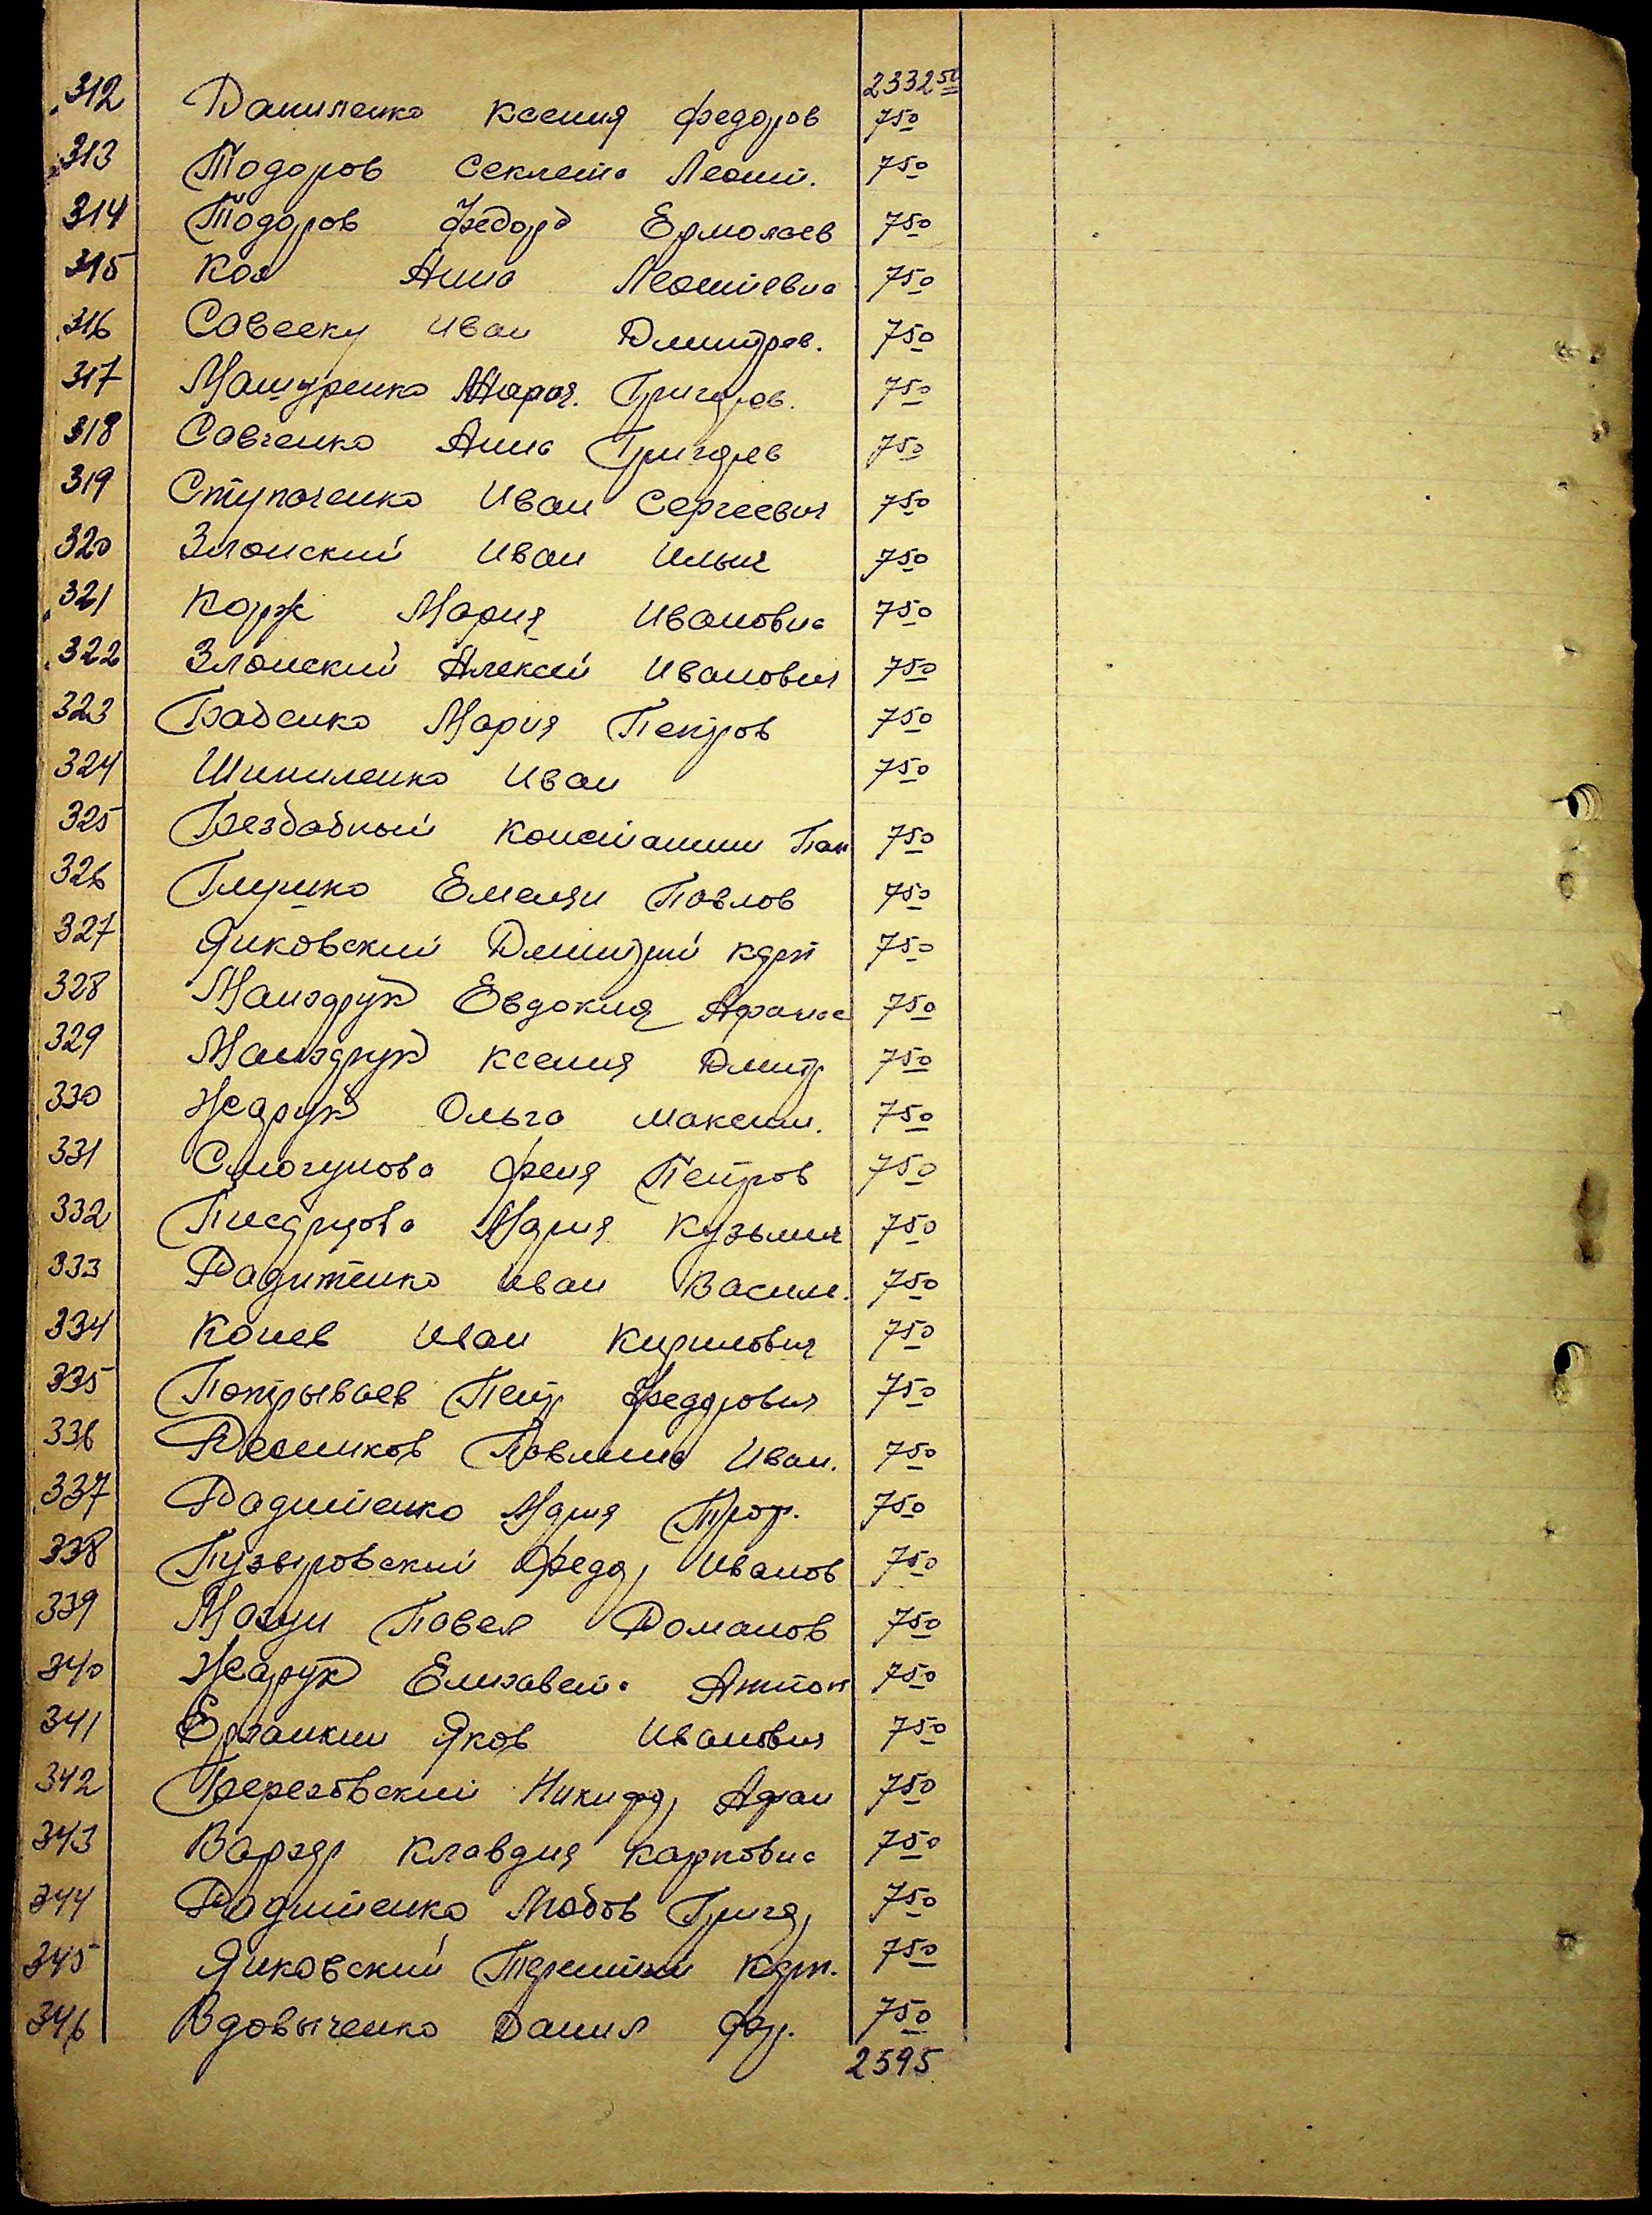 2332 50
312 Даниленко Ксения Федоров 7 50
313 Тодоров Секлета Леонт. 7 50
314 Тодоров Федор Ермолаев 7 50
315 Анна Леонтевна 7 50
316 Савееку Иван Дмитрев. 7 50
317 Машуренко Григоров. 7 50
318 Савченко Анна Григорев 7 50
319 Ступаченко Иван Сергеевич 7 50
320 Злонский Иван Ильич 7 50
321 Корж Мария Ивановна 7 50
322 Злонский Алексей Иванович 7 50
323 Бабенко Мария Петров 7 50
324 Шипиленко Иван 7 50
325 Безбабный Констанин Пан 7 50
326 Глушко Емелян Павлов 7 50
327 Янковский Дмитрий Карп 7 50
328 Манздрук Евдокия Афанас 7 50
329 Манздрук Ксения Дмитр 7 50
330 Жарук Ольга Максим. 7 50
331 Смогунова Феня Петров 7 50
332 Мария Кузьмин 7 50
333 Радитенко Иван Васил. 7 50
334 Конев Иван Кирилович 7 50
335 Потрываев Петр Федорович 7 50
336 Павлина Иван. 7 50
337 Радитенко Мария Проф. 7 50
338 Пузыровский Федор Иванов 7 50
339 Мазун Павел Романов 7 50
340 Жарук Елизавета Антон 7 50
341 Ерганкин Яков Иванович 7 50
342 Березовский Никифор Афан 7 50
343 Варзар Клавдия Карповна 7 50
344 Радитенко Любов Григор 7 50
345 Янковский Терентий Карп. 7 50
346 Вдовыченко Данил Фед. 7 50
2595